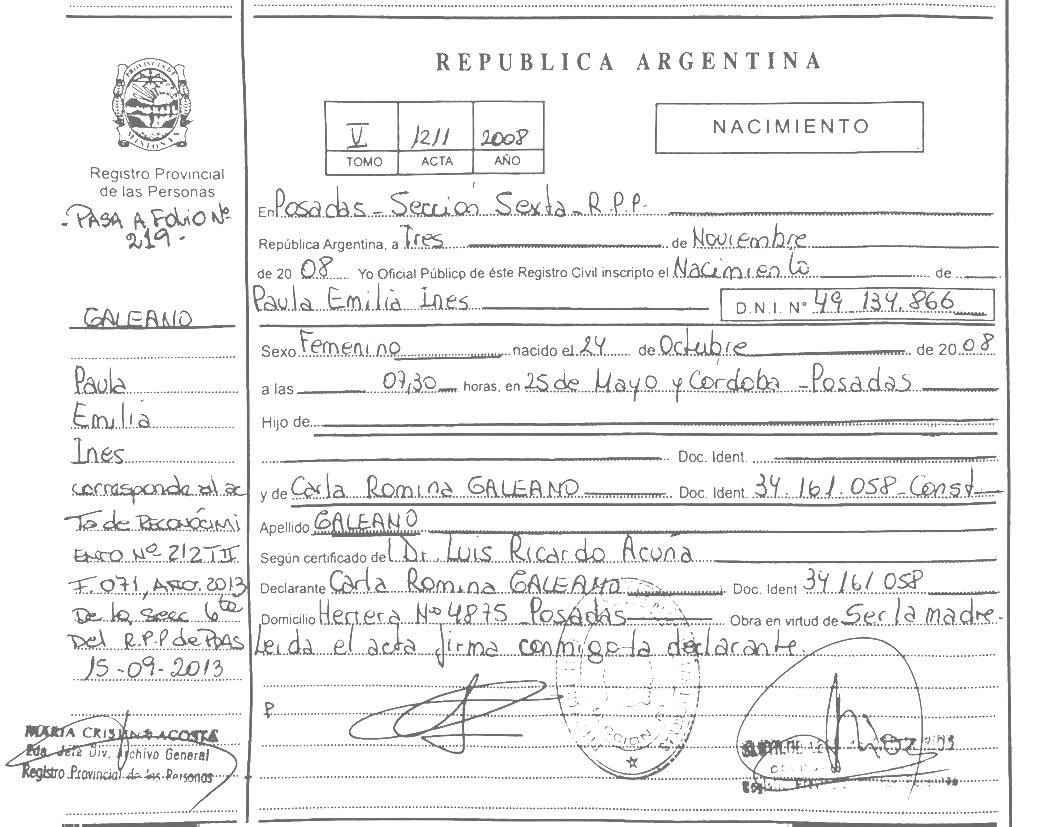 REPUBLICA ARGENTINA
PROVINCIA DE MISIONES
Registro Provincial
de las Personas
- PASA A FOLIO Nº
219 -
GALEANO
Paula
Emilia
Ines
corresponde al ac
To de Reconocimi
ENTO Nº 212 TII
F. 071, AÑO. 2013
De la Secc 6ta
Del R.P.P de PDAS
15-09-2013
MARIA CRISTINA ACOSTA
Jefa Div. Archivo General
Registro Provincial de las Personas
V 1211 2008
TOMO ACTA AÑO
NACIMIENTO
En Posadas - Sección Sexta - R.P.P.
República Argentina, a Tres de Noviembre
de 20 08 Yo Oficial Público de éste Registro Civil inscripto el Nacimiento de
Paula Emilia Ines D.N.I. Nº 49.134.866
Sexo Femenino nacido el 24 de Octubre de 20 08
a las 07,30 horas, en 25 de Mayo y Córdoba - Posadas
Hijo de
Doc. Ident.
y de Carla Romina GALEANO Doc. Ident. 34.161.058 - Const
Apellido GALEANO
Según certificado del Dr Luis Ricardo Acuña
Declarante Carla Romina GALEANO Doc. Ident 34.161.058
Domicilio Herrera Nº 4875 Posadas Obra en virtud de Ser la madre.
Leida el acta firma conmigo la declarante.
P
SECCION